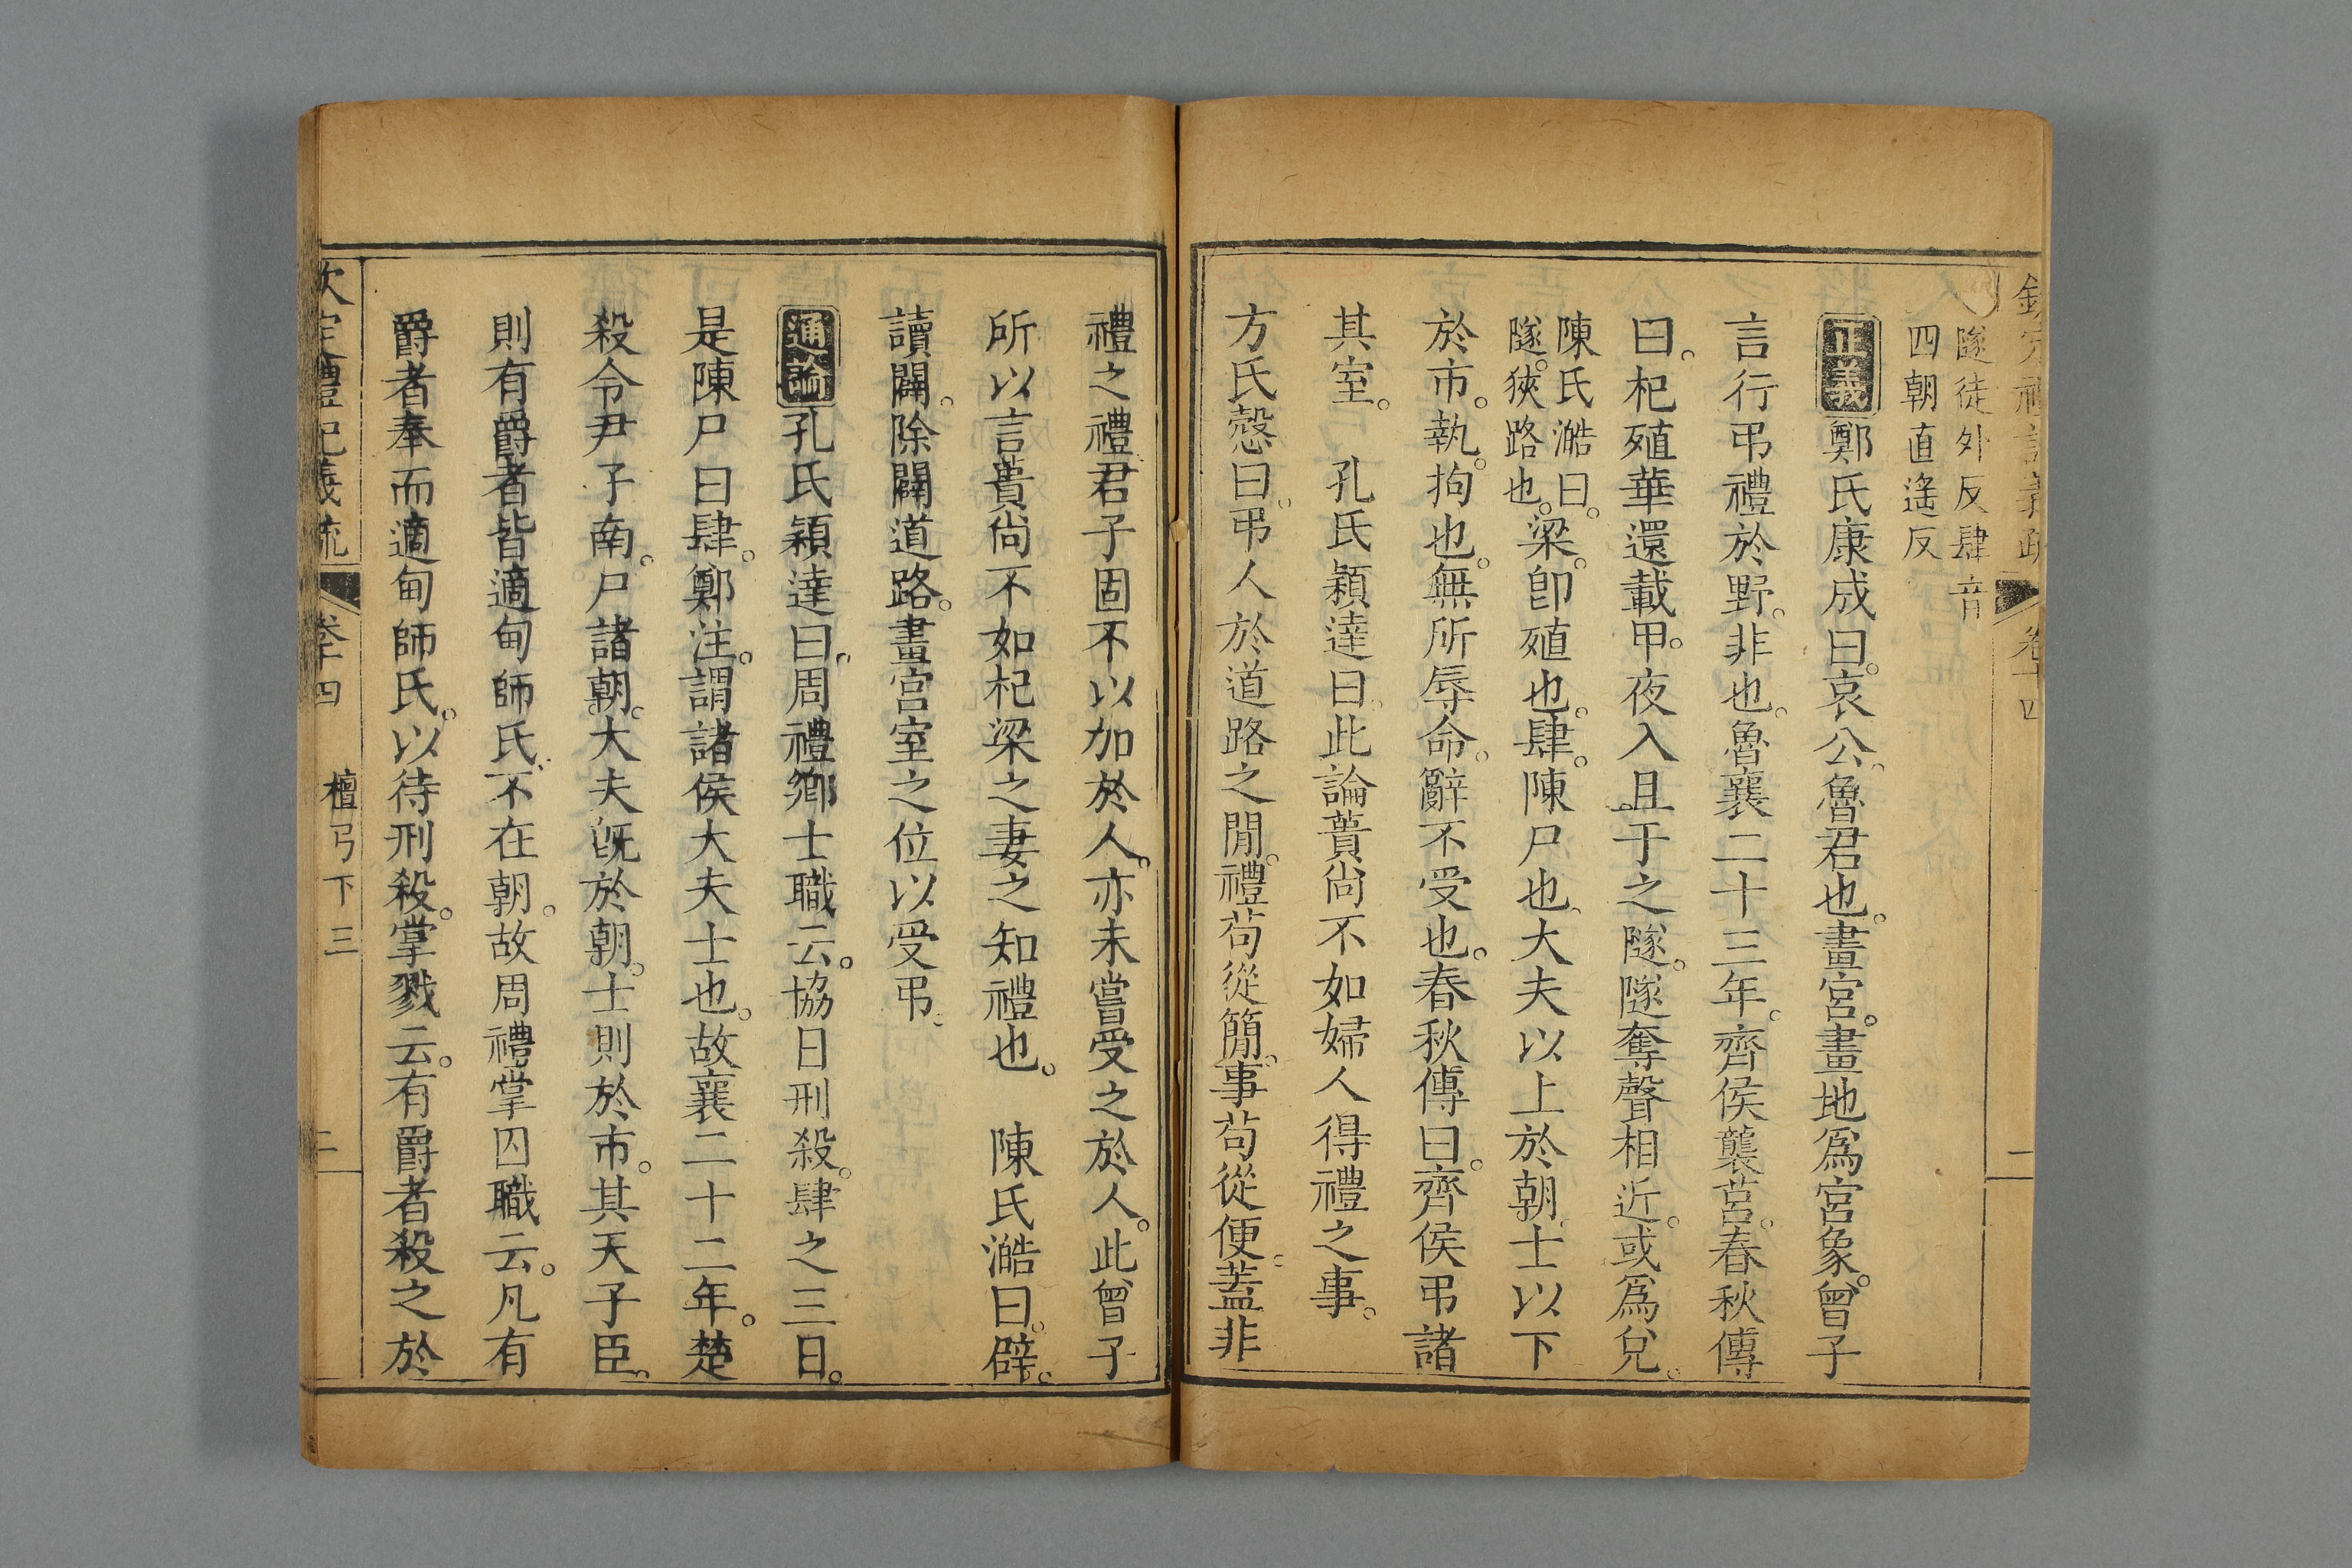 隧徒外反肆音
四朝直遙反
正義鄭氏康成曰哀公魯君也畫宮畫地爲宮象曾子
言行弔禮於野非也魯襄二十三年齊侯襲莒春秋傳
曰杞殖華還載甲夜入且于之隧隧奪聲相近或爲兌
陳氏澔曰
隧狹路也
梁卽殖也肆陳尸也大夫以上於朝士以下
於市執拘也無所辱命辭不受也春秋傳曰齊侯弔諸
其室 孔氏穎達曰此論蕢尙不如婦人得禮之事
方氏愨曰弔人於道路之閒禮茍從簡事茍從便蓋非
禮之禮君子固不以加於人亦未嘗受之於人此曾子
所以言蕢尙不如杞梁之妻之知禮也 陳氏澔曰辟
讀闢除闢道路畫宮室之位以受弔
通論孔氏穎達曰周禮鄉士職云協日刑殺肆之三日
是陳尸曰肆鄭注謂諸侯大夫士也故襄二十二年楚
殺令尹子南尸諸朝大夫旣於朝士則於市其天子臣
則有爵者皆適甸師氏不在朝故周禮掌囚職云凡有
爵者奉而適甸師氏以待刑殺掌戮云有爵者殺之於
欽定禮記義疏 卷十四 檀弓下三 二